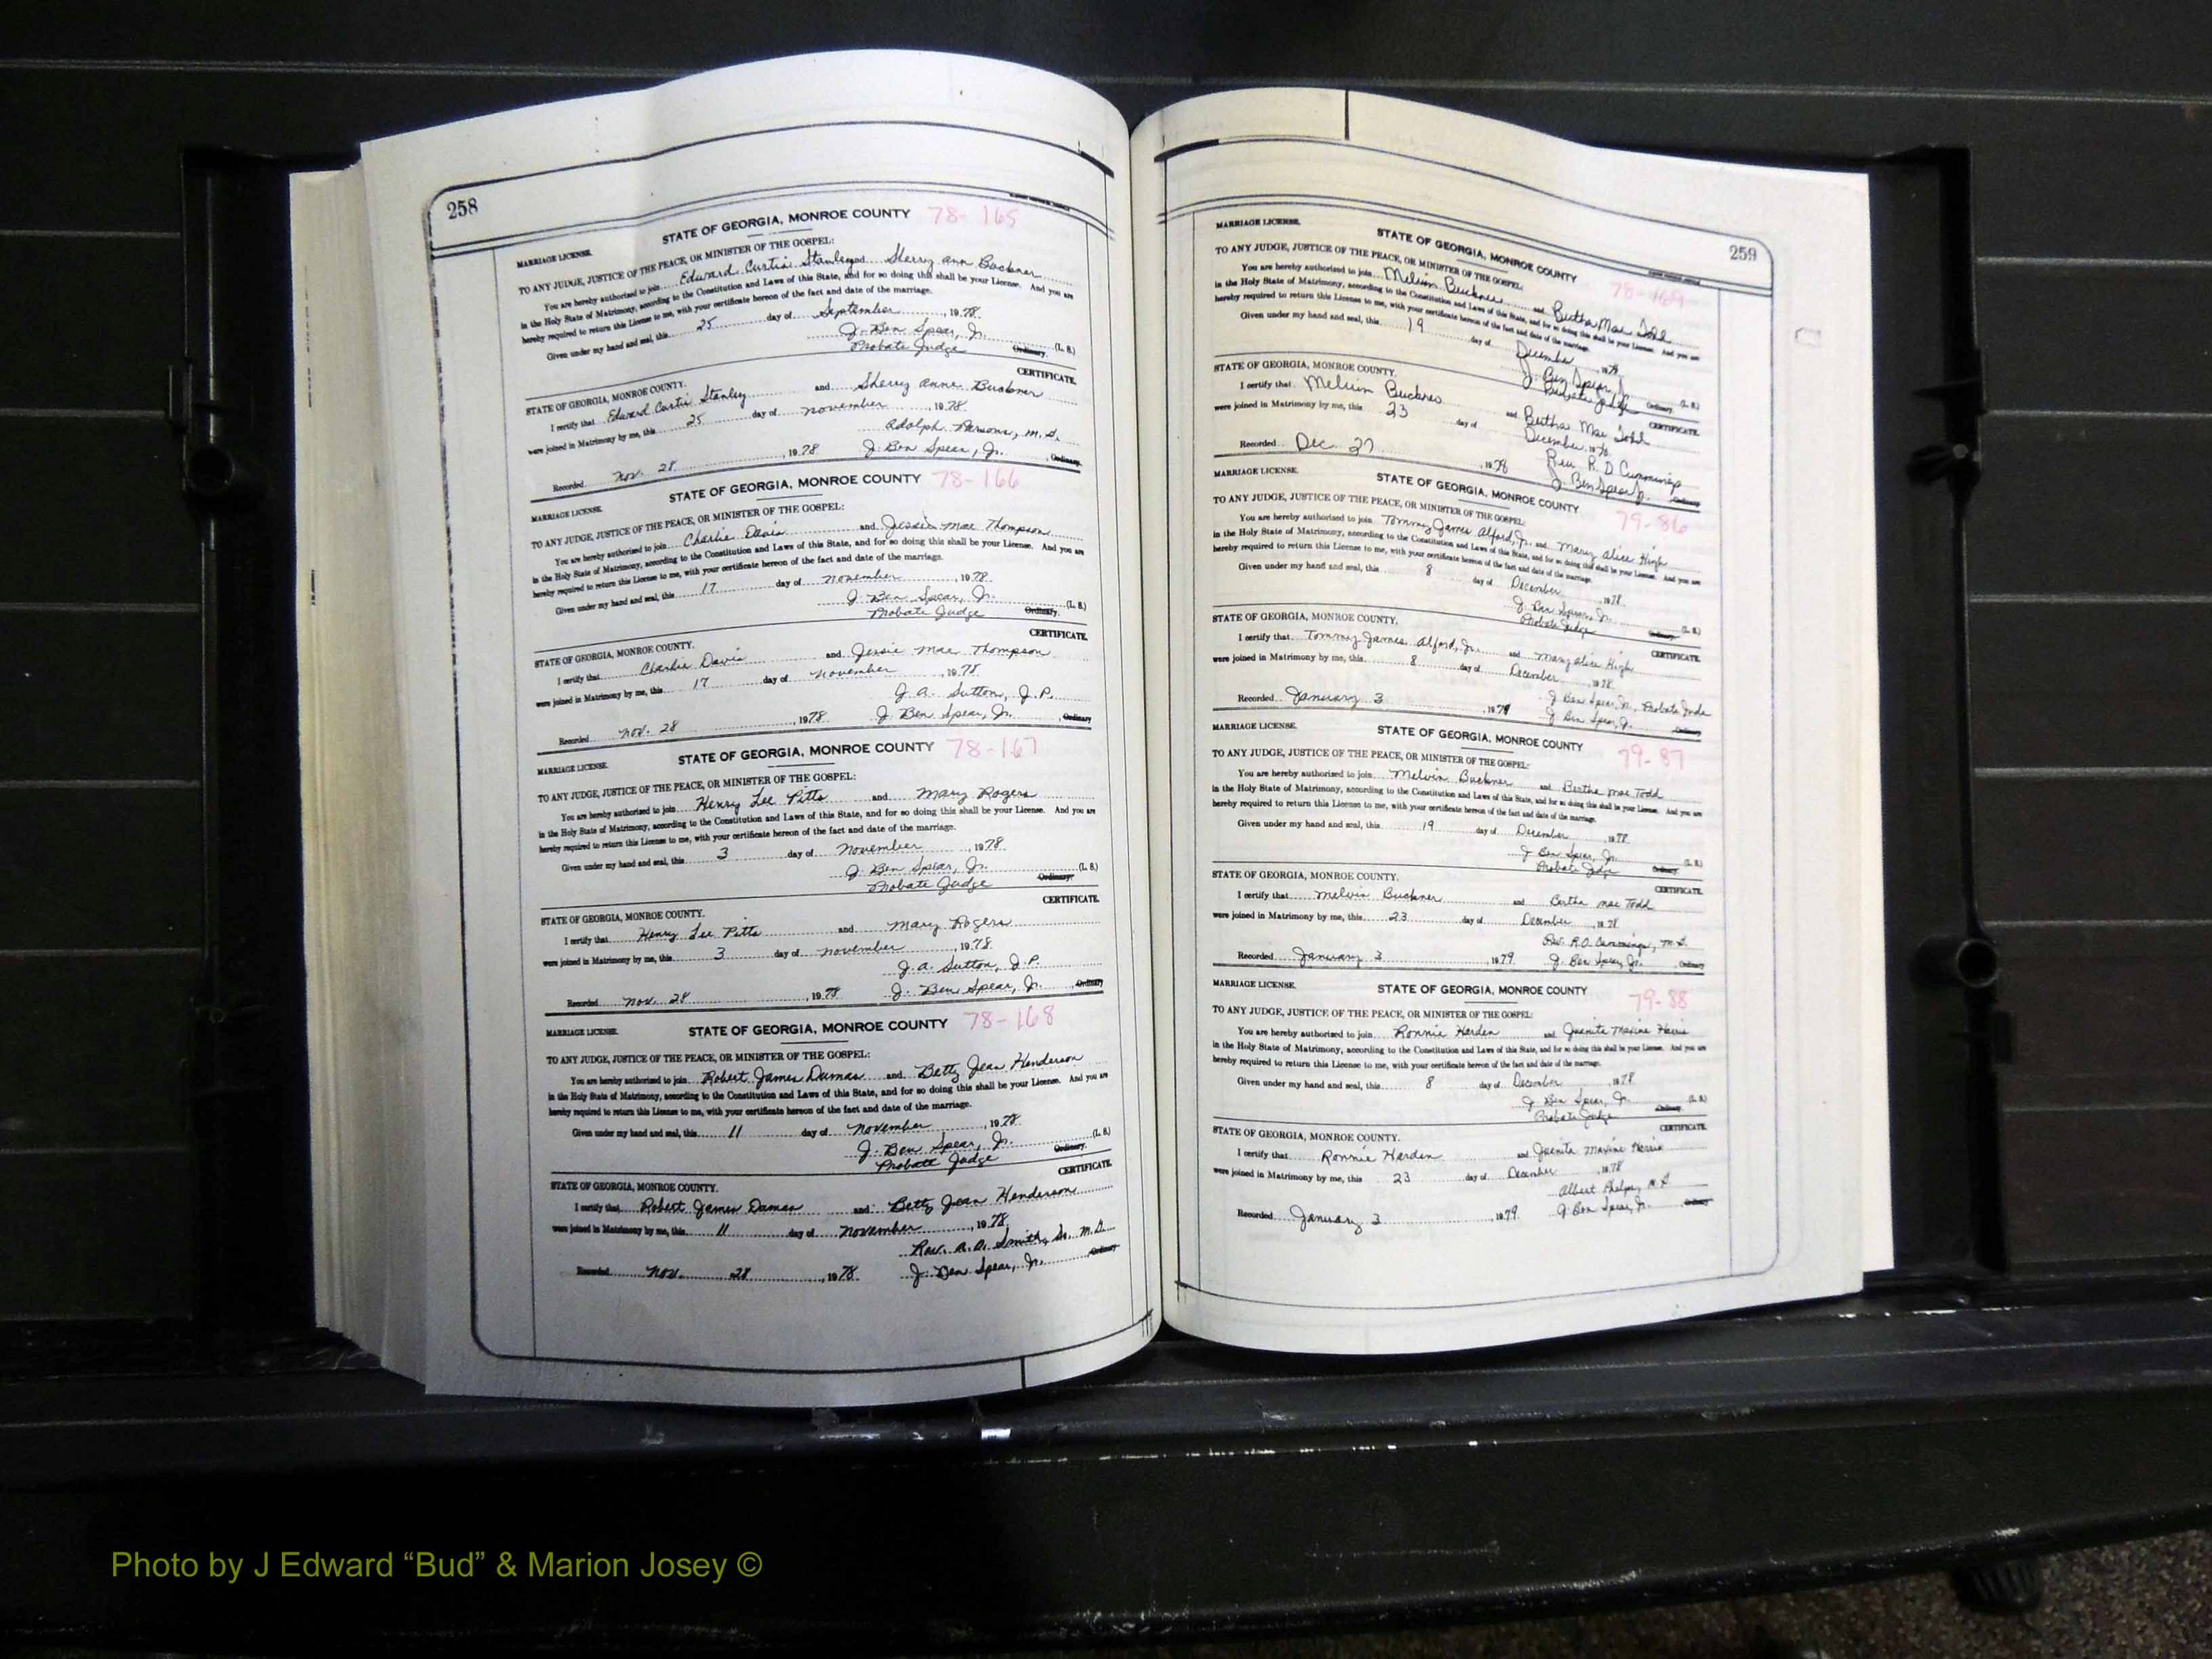 258
STATE OF GEORGIA, MONROE COUNTY 78-165
MARRIAGE LICENSE.
TO ANY JUDGE, JUSTICE OF THE PEACE, OR MINISTER OF THE GOSPEL:
You are hereby authorized to join Edward Curtis Stanley and Sherry Ann Buckner
in the Holy State of Matrimony, according to the Constitution and Laws of this State, and for so doing this shall be your License. And you are
hereby required to return this License to me, with your certificate hereon of the fact and date of the marriage.
Given under my hand and seal, this 25 day of September, 1978.
J. Ben Spear, Jr. (L. S.)
Probate Judge Ordinary.
CERTIFICATE.
STATE OF GEORGIA, MONROE COUNTY.
I certify that Edward Curtis Stanley and Sherry Anne Buckner
were joined in Matrimony by me, this 25 day of November, 1978.
Adolph Persons, M.G.
Recorded Nov. 28, 1978 J. Ben Spear, Jr., Ordinary.
STATE OF GEORGIA, MONROE COUNTY 78-166
MARRIAGE LICENSE.
TO ANY JUDGE, JUSTICE OF THE PEACE, OR MINISTER OF THE GOSPEL:
You are hereby authorized to join Charlie Davis and Jessie Mae Thompson
in the Holy State of Matrimony, according to the Constitution and Laws of this State, and for so doing this shall be your License. And you are
hereby required to return this License to me, with your certificate hereon of the fact and date of the marriage.
Given under my hand and seal, this 17 day of November, 1978.
J. Ben Spear, Jr. (L. S.)
Probate Judge Ordinary.
CERTIFICATE.
STATE OF GEORGIA, MONROE COUNTY.
I certify that Charlie Davis and Jessie Mae Thompson
were joined in Matrimony by me, this 17 day of November, 1978.
J. A. Sutton, J.P.
Recorded Nov. 28, 1978 J. Ben Spear, Jr., Ordinary
STATE OF GEORGIA, MONROE COUNTY 78-167
MARRIAGE LICENSE.
TO ANY JUDGE, JUSTICE OF THE PEACE, OR MINISTER OF THE GOSPEL:
You are hereby authorized to join Henry Lee Pitts and Mary Rogers
in the Holy State of Matrimony, according to the Constitution and Laws of this State, and for so doing this shall be your License. And you are
hereby required to return this License to me, with your certificate hereon of the fact and date of the marriage.
Given under my hand and seal, this 3 day of November, 1978.
J. Ben Spear, Jr. (L. S.)
Probate Judge Ordinary.
CERTIFICATE.
STATE OF GEORGIA, MONROE COUNTY.
I certify that Henry Lee Pitts and Mary Rogers
were joined in Matrimony by me, this 3 day of November, 1978.
J. A. Sutton, J.P.
Recorded Nov. 28, 1978 J. Ben Spear, Jr., Ordinary
MARRIAGE LICENSE. STATE OF GEORGIA, MONROE COUNTY 78-168
TO ANY JUDGE, JUSTICE OF THE PEACE, OR MINISTER OF THE GOSPEL:
You are hereby authorized to join Robert James Dumas and Betty Jean Henderson
in the Holy State of Matrimony, according to the Constitution and Laws of this State, and for so doing this shall be your License. And you are
hereby required to return this License to me, with your certificate hereon of the fact and date of the marriage.
Given under my hand and seal, this 11 day of November, 1978.
J. Ben Spear, Jr. (L. S.)
Probate Judge Ordinary.
CERTIFICATE.
STATE OF GEORGIA, MONROE COUNTY.
I certify that Robert James Dumas and Betty Jean Henderson
were joined in Matrimony by me, this 11 day of November, 1978.
Rev. A. D. Smith, Sr. M.G.
Recorded Nov. 28, 1978. J. Ben Spear, Jr., Ordinary
259
MARRIAGE LICENSE.
STATE OF GEORGIA, MONROE COUNTY 78-169
TO ANY JUDGE, JUSTICE OF THE PEACE, OR MINISTER OF THE GOSPEL:
You are hereby authorized to join Melvin Buckner and Bertha Mae Todd
in the Holy State of Matrimony, according to the Constitution and Laws of this State, and for so doing this shall be your License. And you are
hereby required to return this License to me, with your certificate hereon of the fact and date of the marriage.
Given under my hand and seal, this 19 day of December, 1978.
J. Ben Spear, Jr. (L. S.)
Probate Judge Ordinary.
STATE OF GEORGIA, MONROE COUNTY. CERTIFICATE.
I certify that Melvin Buckner and Bertha Mae Todd
were joined in Matrimony by me, this 23 day of December, 1978.
Rev. R. D. Cummings
Recorded Dec. 27, 1978 J. Ben Spear Jr. Ordinary
MARRIAGE LICENSE.
STATE OF GEORGIA, MONROE COUNTY 79-86
TO ANY JUDGE, JUSTICE OF THE PEACE, OR MINISTER OF THE GOSPEL:
You are hereby authorized to join Tommy James Alford, Jr. and Mary Alice High
in the Holy State of Matrimony, according to the Constitution and Laws of this State, and for so doing this shall be your License. And you are
hereby required to return this License to me, with your certificate hereon of the fact and date of the marriage.
Given under my hand and seal, this 8 day of December, 1978.
J. Ben Spear, Jr. (L. S.)
Probate Judge Ordinary.
STATE OF GEORGIA, MONROE COUNTY. CERTIFICATE.
I certify that Tommy James Alford, Jr. and Mary Alice High
were joined in Matrimony by me, this 8 day of December, 1978.
J Ben Spear, Jr., Probate Judge
Recorded January 3, 1979 J Ben Spear, Jr. Ordinary
MARRIAGE LICENSE.
STATE OF GEORGIA, MONROE COUNTY 79-87
TO ANY JUDGE, JUSTICE OF THE PEACE, OR MINISTER OF THE GOSPEL:
You are hereby authorized to join Melvin Buckner and Bertha Mae Todd
in the Holy State of Matrimony, according to the Constitution and Laws of this State, and for so doing this shall be your License. And you are
hereby required to return this License to me, with your certificate hereon of the fact and date of the marriage.
Given under my hand and seal, this 19 day of December, 1978.
J Ben Spear, Jr. (L. S.)
Probate Judge Ordinary.
STATE OF GEORGIA, MONROE COUNTY. CERTIFICATE.
I certify that Melvin Buckner and Bertha Mae Todd
were joined in Matrimony by me, this 23 day of December, 1978
Rev. R.D. Cummings, M.G.
Recorded January 3, 1979 J. Ben Spear, Jr., Ordinary
MARRIAGE LICENSE.
STATE OF GEORGIA, MONROE COUNTY 79-88
TO ANY JUDGE, JUSTICE OF THE PEACE, OR MINISTER OF THE GOSPEL:
You are hereby authorized to join Ronnie Harden and Juanita Maxine Harris
in the Holy State of Matrimony, according to the Constitution and Laws of this State, and for so doing this shall be your License. And you are
hereby required to return this License to me, with your certificate hereon of the fact and date of the marriage.
Given under my hand and seal, this 8 day of December, 1978
J Ben Spear, Jr. (L. S.)
Probate Judge Ordinary.
STATE OF GEORGIA, MONROE COUNTY. CERTIFICATE.
I certify that Ronnie Harden and Juanita Maxine Harris
were joined in Matrimony by me, this 23 day of December, 1978
Albert Phelps, M.G
Recorded January 3, 1979. J Ben Spear, Jr. Ordinary
Photo by J Edward “Bud” & Marion Josey ©